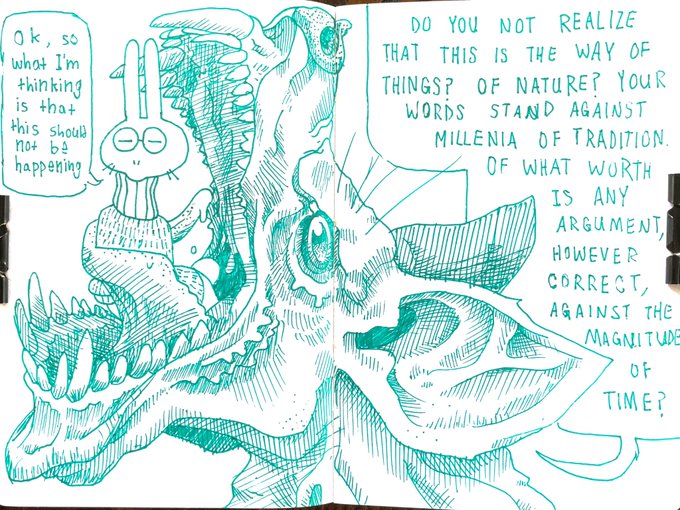 Ok, so
what I'm
thinking
is that
this should
not be
happening
DO YOU NOT REALIZE
THAT THIS IS THE WAY OF
THINGS? OF NATURE? YOUR
WORDS STAND AGAINST
MILLENIA OF TRADITION.
OF WHAT WORTH
IS ANY
ARGUMENT,
HOWEVER
CORRECT,
AGAINST THE
MAGNITUDE
OF
TIME?